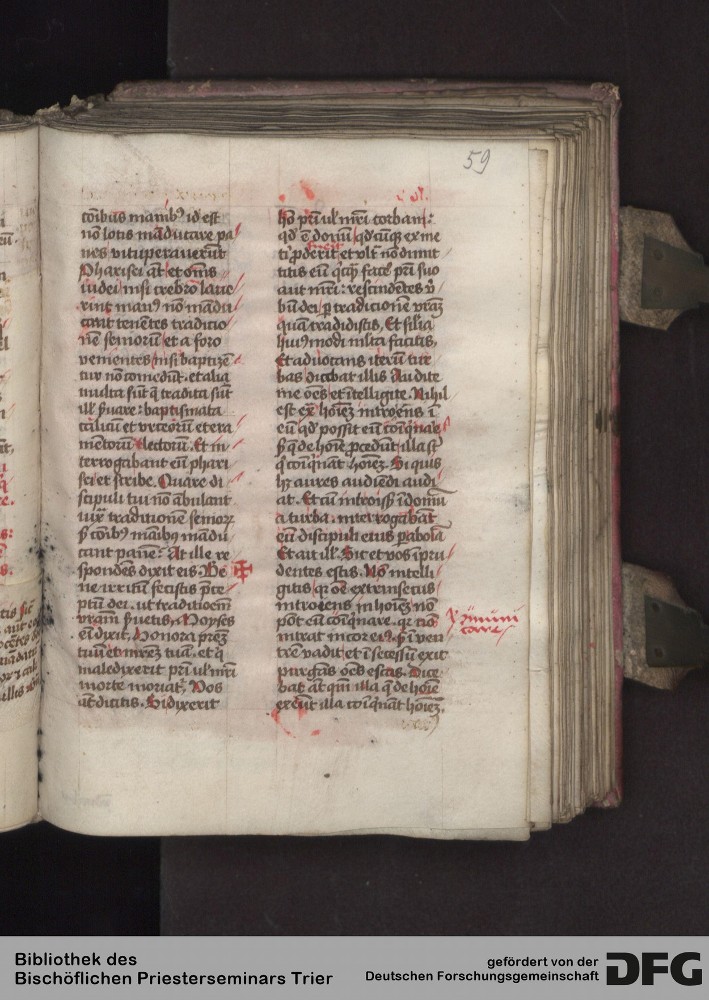 59
cōibus manibꝫ id est
nō lotis māducare pa
nes vituperauerūt
Pharisei āt et om̄s
iudei nisi crebro laue
rint manꝰ nō mādu
cant tenētes traditio
nē seniorū et a foro
venientes nisi baptizē
tur nō comedūt. et alia
multa sūt q̄ tradita sūt
ill' ẜuare: baptismata
calicū et vrceorū et era
mētorū et lectorū. Et in
terrogabant eū phari
sei et scribe. Quare di
scipuli tui nō ābulant
iuxͣ traditionē senioꝝ
ẜ cōibꝫ manibꝫ mādu
cant panē. At ille re
spondēs dixit eis. Be
ne irritū fecistis p̄ce
ptū dei. ut traditioem
vr̄am ẜuetis. Moyses
eī dixit, Honora prēꝫ
tuū et mrēꝫ tuā. et q̄
maledixerit pr̄i ul' mr̄i
morte moriat᷑. Vos
āt dicitis. Si dixerit
hō pr̄i ul' mr̄i corban:
qd' ē donū qd'cūqꝫ ex me
ti ꝓderit et vlt' nō dimit
titis eū q̄cꝗ facē pr̄i suo
aut mr̄i: rescindētes v̄
bū dei ꝑ traditionē vr̄aꝫ
quā tradidistis. Et sil'ia
huiꝰmodi mlta facitis.
Et aduocans iterū tur
bas dicebat illis Audite
me oēs et ītelligite. Nihil
est ex̄ hoīeꝫ introiens ī
eū qd' possit eū coīq'nare
ẜ q̄ de hoīe ꝓcedūt illa st̄
q̄ coīq'nāt hoīeꝫ. Si quis
hꝫ aures audiēdi audi
at. Et cū introisꝫ ī domū
a turba. interrogabāt
eū discipuli eius ꝑabolā
Et ait ill'. Sic et vos īpru
dentes estis. Nō intelli
gitis qꝛ oē extrinsecus
introiens in hoīeꝫ nō
pōt eū coīq'nare. qꝛ nō
intrat in cor eiꝰ. ẜ ī ven
trē vadit et ī secessū exit
purgās oēs escas. Dice
bat āt qm̄ illa q̄ de hoīe
exeūt illa coīq'nāt hoīeꝫ.
Bibliothek des
Bischöflichen Priesterseminars Trier
gefördert von der
Deutschen Forschungsgemeinschaft
DFG